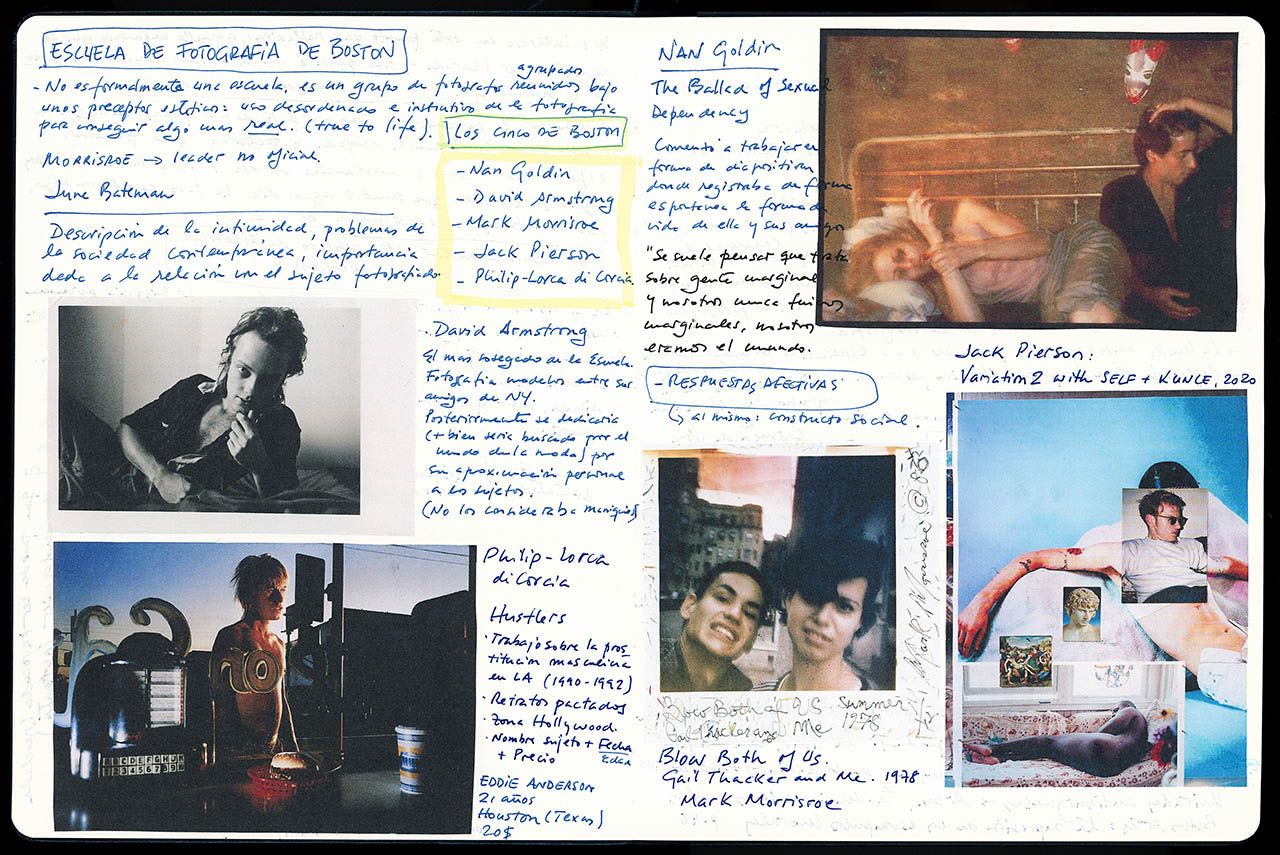 ESCUELA DE FOTOGRAFIA DE BOSTON
- No es formalmente una escuela, es un grupo de fotógrafos reunidos bajo
agrupados
unos preceptos estéticos: uso desordenado e instintivo de la fotografia
para conseguir algo mas real. (true to life).
MORRISROE → leader no oficial.
June Bateman
Descripción de la intimidad, problemas de
la sociedad contemporánea, importancia
dada a la relación con el sujeto fotografiado
LOS CINCO DE BOSTON
- Nan Goldin
- David Armstrong
- Mark Morrisroe
- Jack Pierson
- Philip-Lorca di Corcia
David Armstrong
El mas sosegado de la Escuela.
Fotografia modelos entre sus
amigos de NY.
Posteriormente se dedicaria
(+ bien seria buscado por el
mundo de la moda) por
su aproximación personal
a los sujetos.
(No los consideraba maniquis)
Philip-Lorca
diCorcia
Hustlers
· Trabajo sobre la pros-
titución masculina
en LA (1990-1992)
· Retratos pactados
· Zona Hollywood.
· Nombre sujeto + Fecha
Edad
+ Precio
EDDIE ANDERSON
21 años
Houston (Texas)
20$
NAN Goldin
The Ballad of Sexual
Dependency
Comenzó a trabajar en
forma de diapositivas
donde registraba de forma
espontanea la forma de
vida de ella y sus amigos
"Se suele pensar que trata
sobre gente marginal
y nosotros nunca fuimos
marginales, nosotros
eramos el mundo.
- RESPUESTAS AFECTIVAS
↳ al mismo: constructo social.
Jack Pierson:
Variation 2 with SELF + KUNLE, 2020
Blow Both of US Summer
Gail Thacker and Me 1978
Mark Morrisroe
Blow Both of Us.
Gail Thacker and Me. 1978
Mark Morrisroe
ABCDEFGHJK